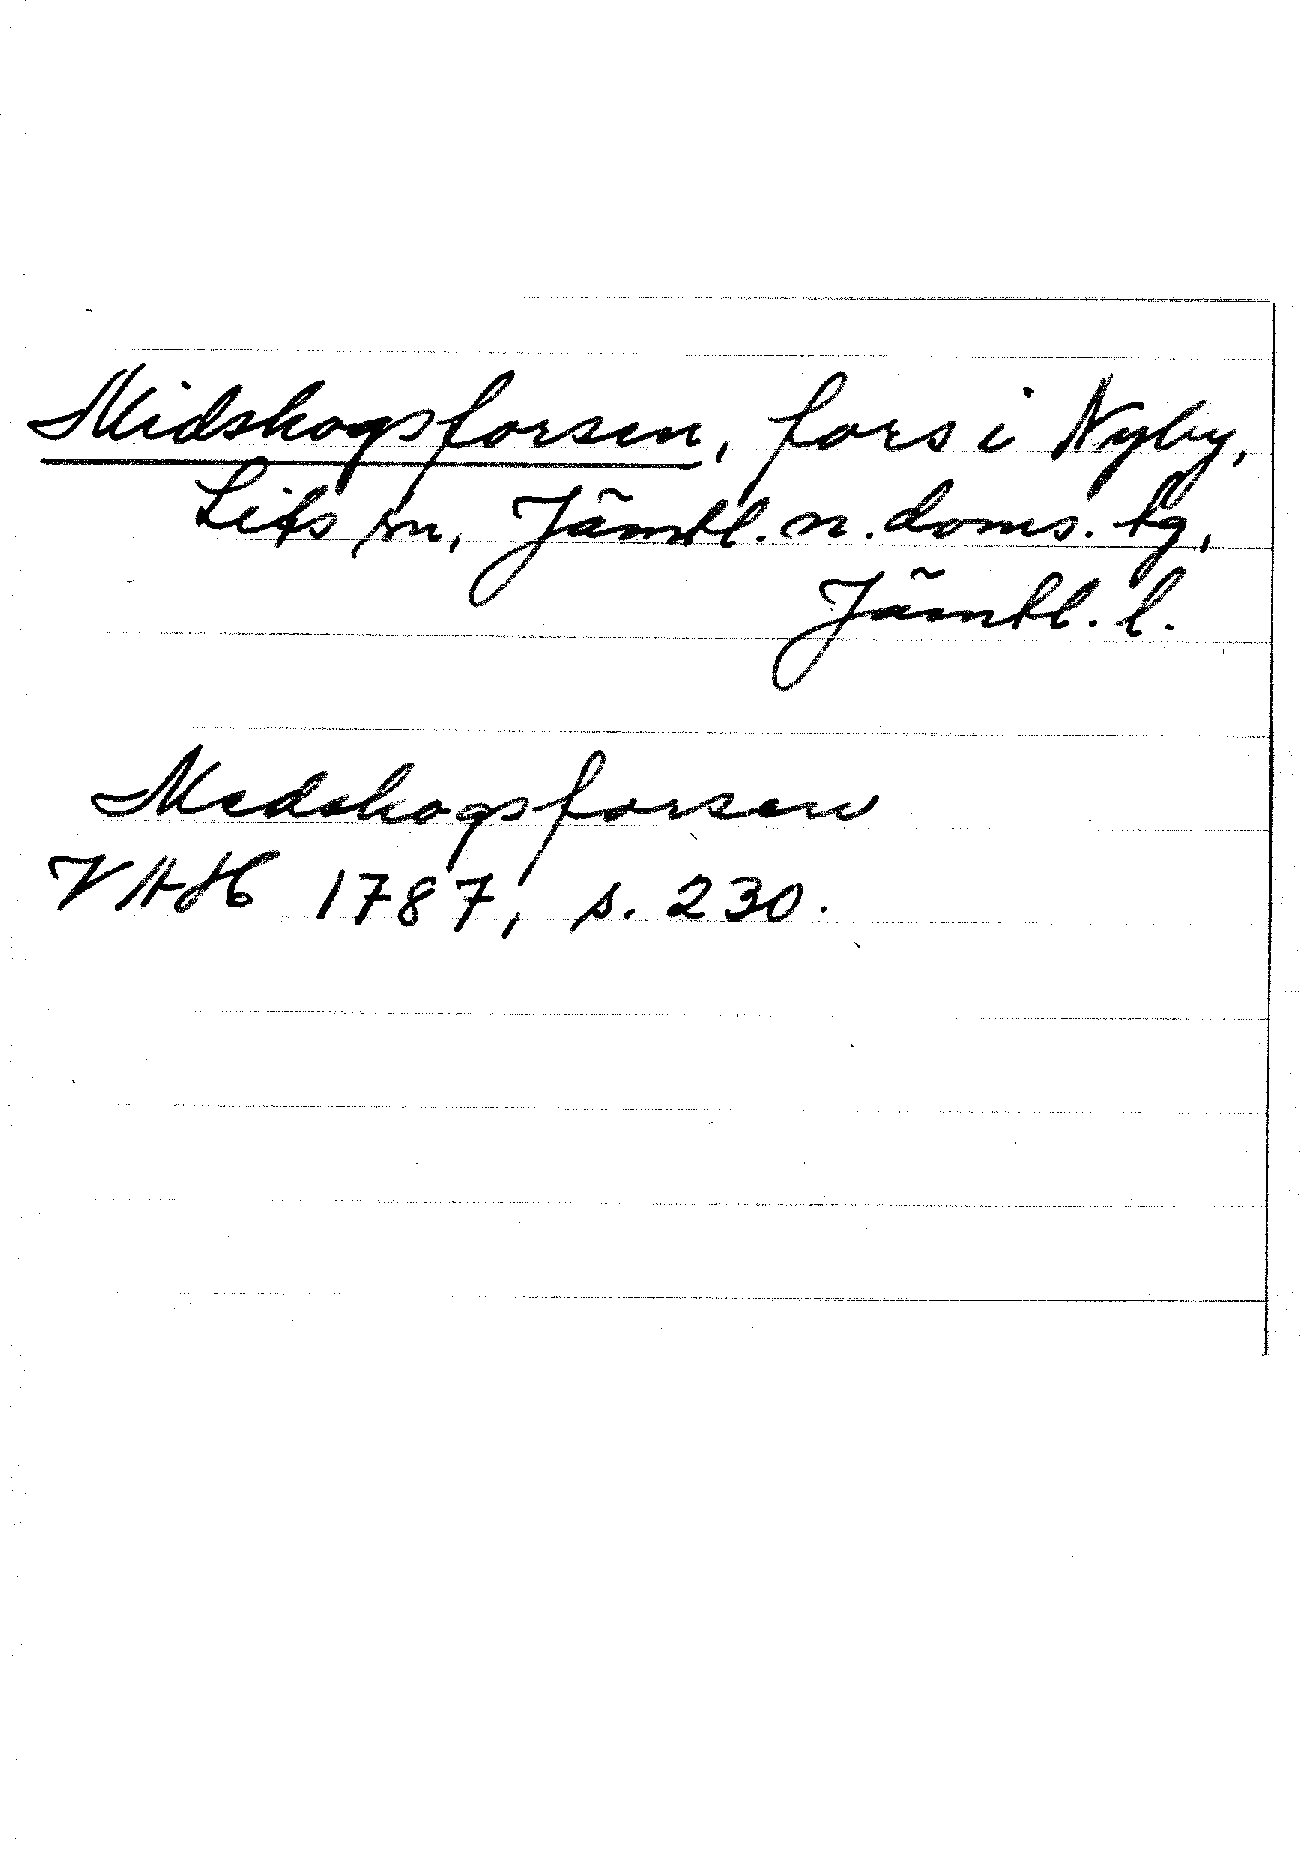 Midskogsforsen, fors i Nyby,
Lits sn, Jämtl. n. doms. tg,
Jämtl. l.
Medskogsforsen
VAH 1787, s. 230.